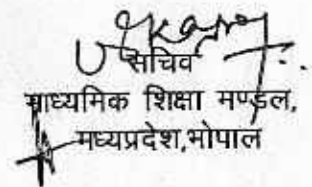 सचिव
माध्यमिक शिक्षा मण्डल,
मध्यप्रदेश,भोपाल